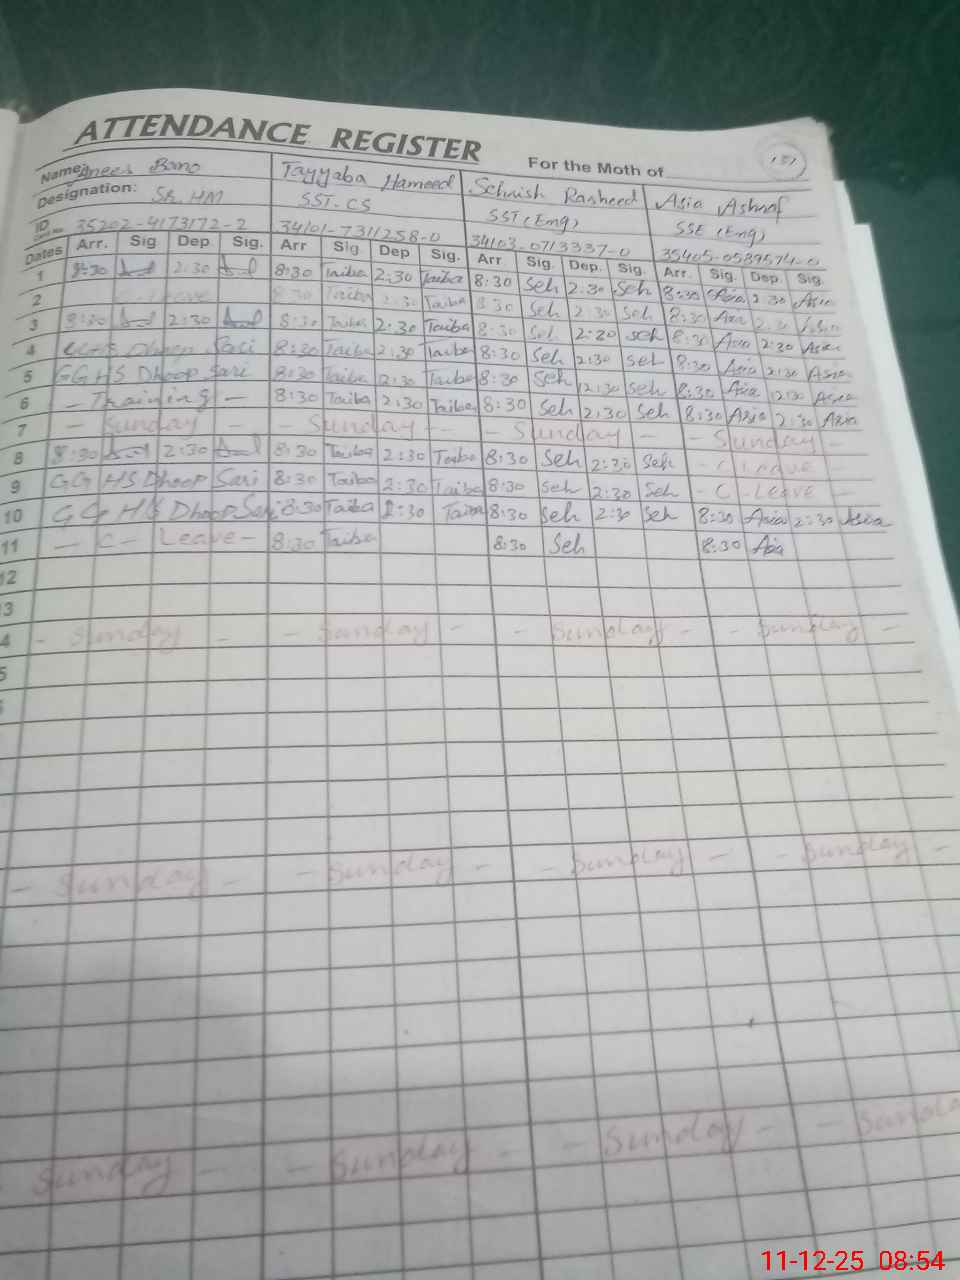 ATTENDANCE REGISTER For the Moth of (5)
Name: Anees Bano Tayyaba Hameed Sehrish Rasheed Asia Ashraf
Designation: SR. HM SST-CS SST (Eng) SSE (Eng)
ID 35202-4173172-2 34101-7311258-0 34103-0713337-0 35405-0589574-0
Dates Arr. Sig Dep Sig. Arr Sig Dep Sig. Arr Sig. Dep. Sig. Arr. Sig. Dep. Sig.
1 8:30 2:30 8:30 Taiba 2:30 Taiba 8:30 Seh 2:30 Seh 8:30 Asia 2:30 Asia
2 C-Leave 8:30 Taiba 2:30 Taiba 8:30 Seh 2:30 Seh 8:30 Asia 2:30 Asia
3 8:30 2:30 8:30 Taiba 2:30 Taiba 8:30 Seh 2:30 Seh 8:30 Asia 2:30 Asia
4 GGHS Dhoop Sari 8:30 Taiba 2:30 Taiba 8:30 Seh 2:30 Seh 8:30 Asia 2:30 Asia
5 GGHS Dhoop Sari 8:30 Taiba 2:30 Taiba 8:30 Seh 2:30 Seh 8:30 Asia 2:30 Asia
6 - Training - 8:30 Taiba 2:30 Taiba 8:30 Seh 2:30 Seh 8:30 Asia 2:30 Asia
7 - Sunday - Sunday - - Sunday - - Sunday -
8 8:30 2:30 8:30 Taiba 2:30 Taiba 8:30 Seh 2:30 Seh - C Leave -
9 GGHS Dhoop Sari 8:30 Taiba 2:30 Taiba 8:30 Seh 2:30 Seh - C - Leave -
10 GGHS Dhoop Sari 8:30 Taiba 2:30 Taiba 8:30 Seh 2:30 Seh 8:30 Asia 2:30 Asia
11 - C- Leave - 8:30 Taiba 8:30 Seh 8:30 Asia
12
3
4 - Sunday - - Sunday - - Sunday - - Sunday -
5
- Sunday - - Sunday - - Sunday - - Sunday -
Sunday - - Sunday - - Sunday - - Sunda
11-12-25 08:54